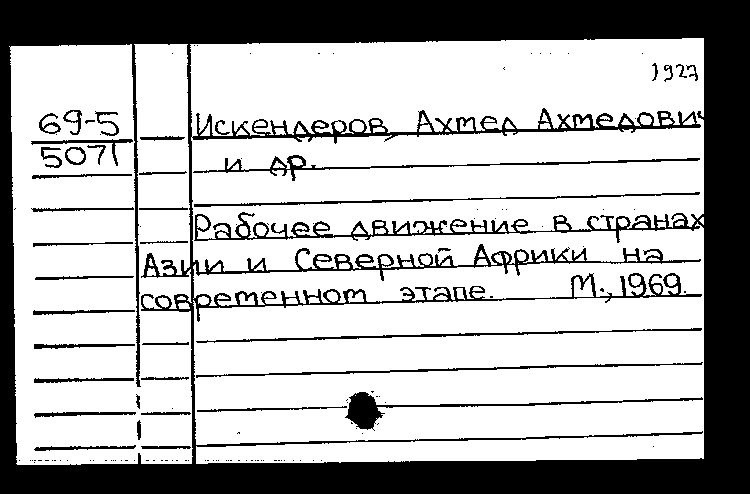 1927
69-5
5071
Искендеров, Ахмед Ахмедович
и др.
Рабочее движение в странах
Азии и Северной Африки на
современном этапе. М., 1969.